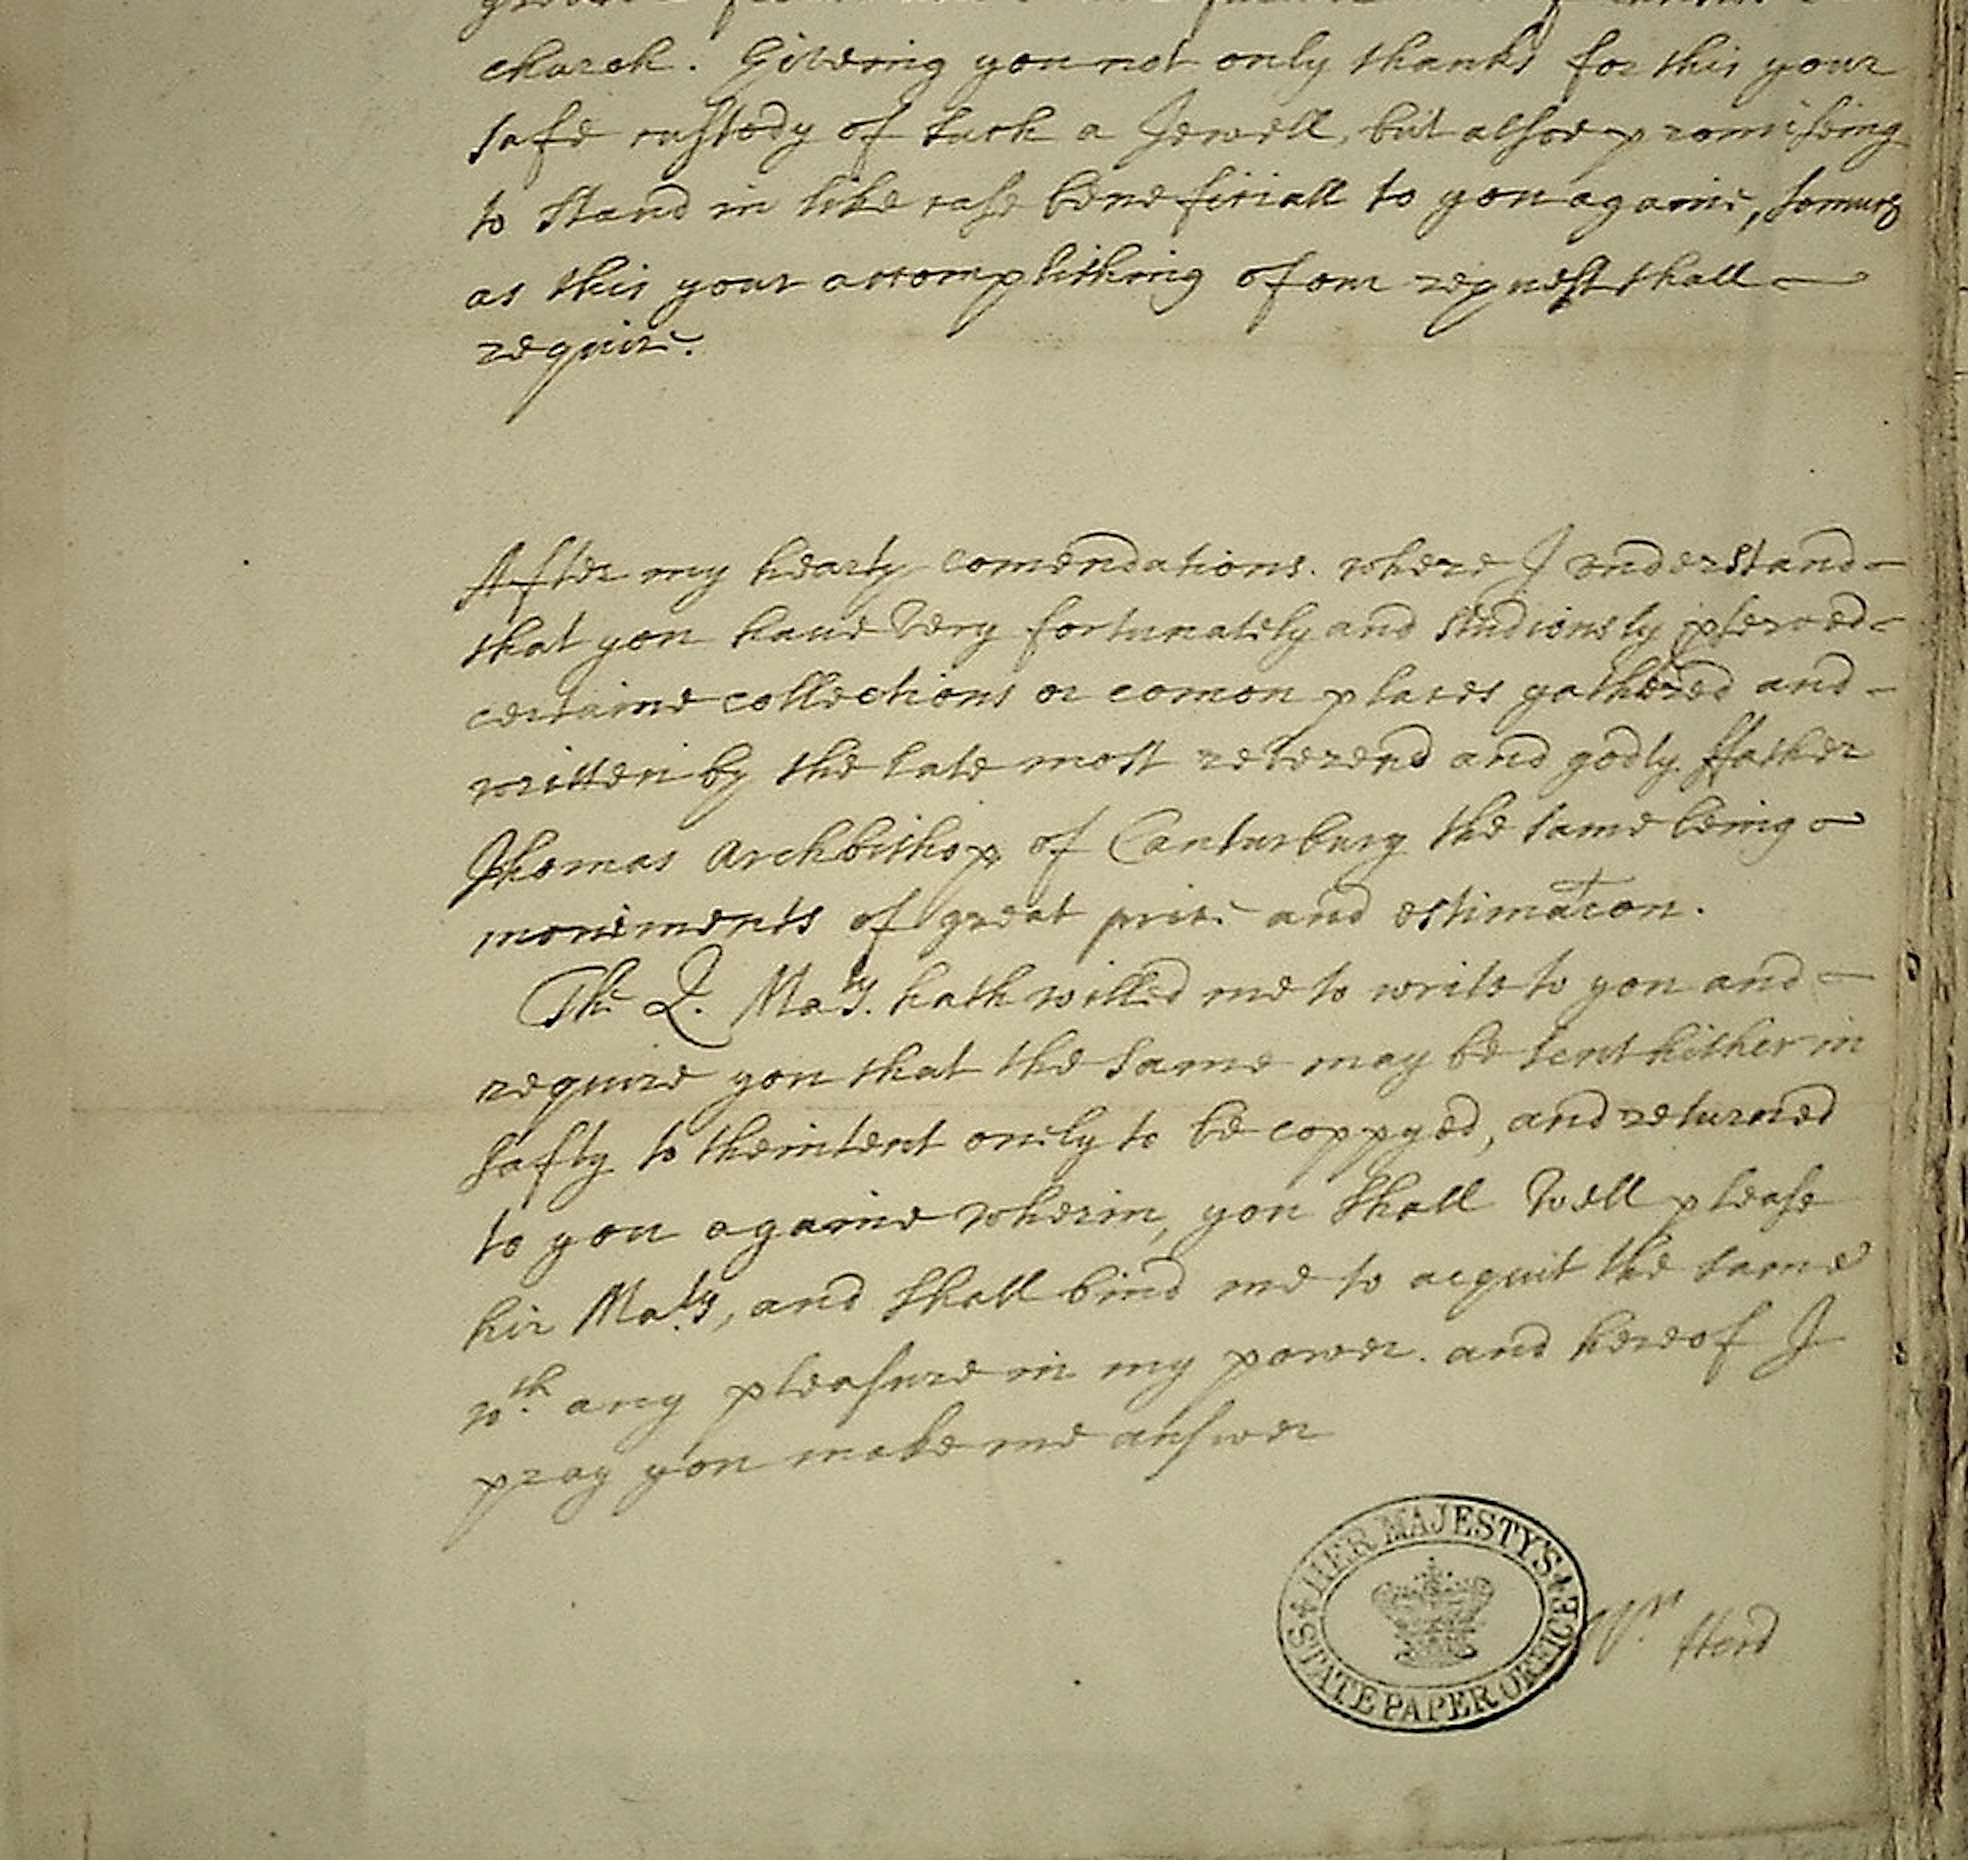 church. Giveing you not only thanks for this your
safe custody of such a Jewell, but alsoe promiseing
to stand in like case beneficiall to you againe, somuch
as this your accomplishing of our request shall
require.
After my hearty comendations. where I understand
that you haue very fortunately and studiously
certaine collections or comon places gathered and
written by the late most reverend and godly ffather
Thomas Archbishop of Canturbury the same being
moniments of great price and estimacon.
The Q. Maty. hath willed me to write to you and
require you that the same may be sent hither in
safty to theintent onely to be coppyed, and returned
to you againe wherin, you shall well please
hir Maty, and shall bind me to acquit the same
wth any pleasure in my power. and hereof I
pray you make me answer
HER MAJESTY'S STATE PAPER OFFICE
Wm Herd